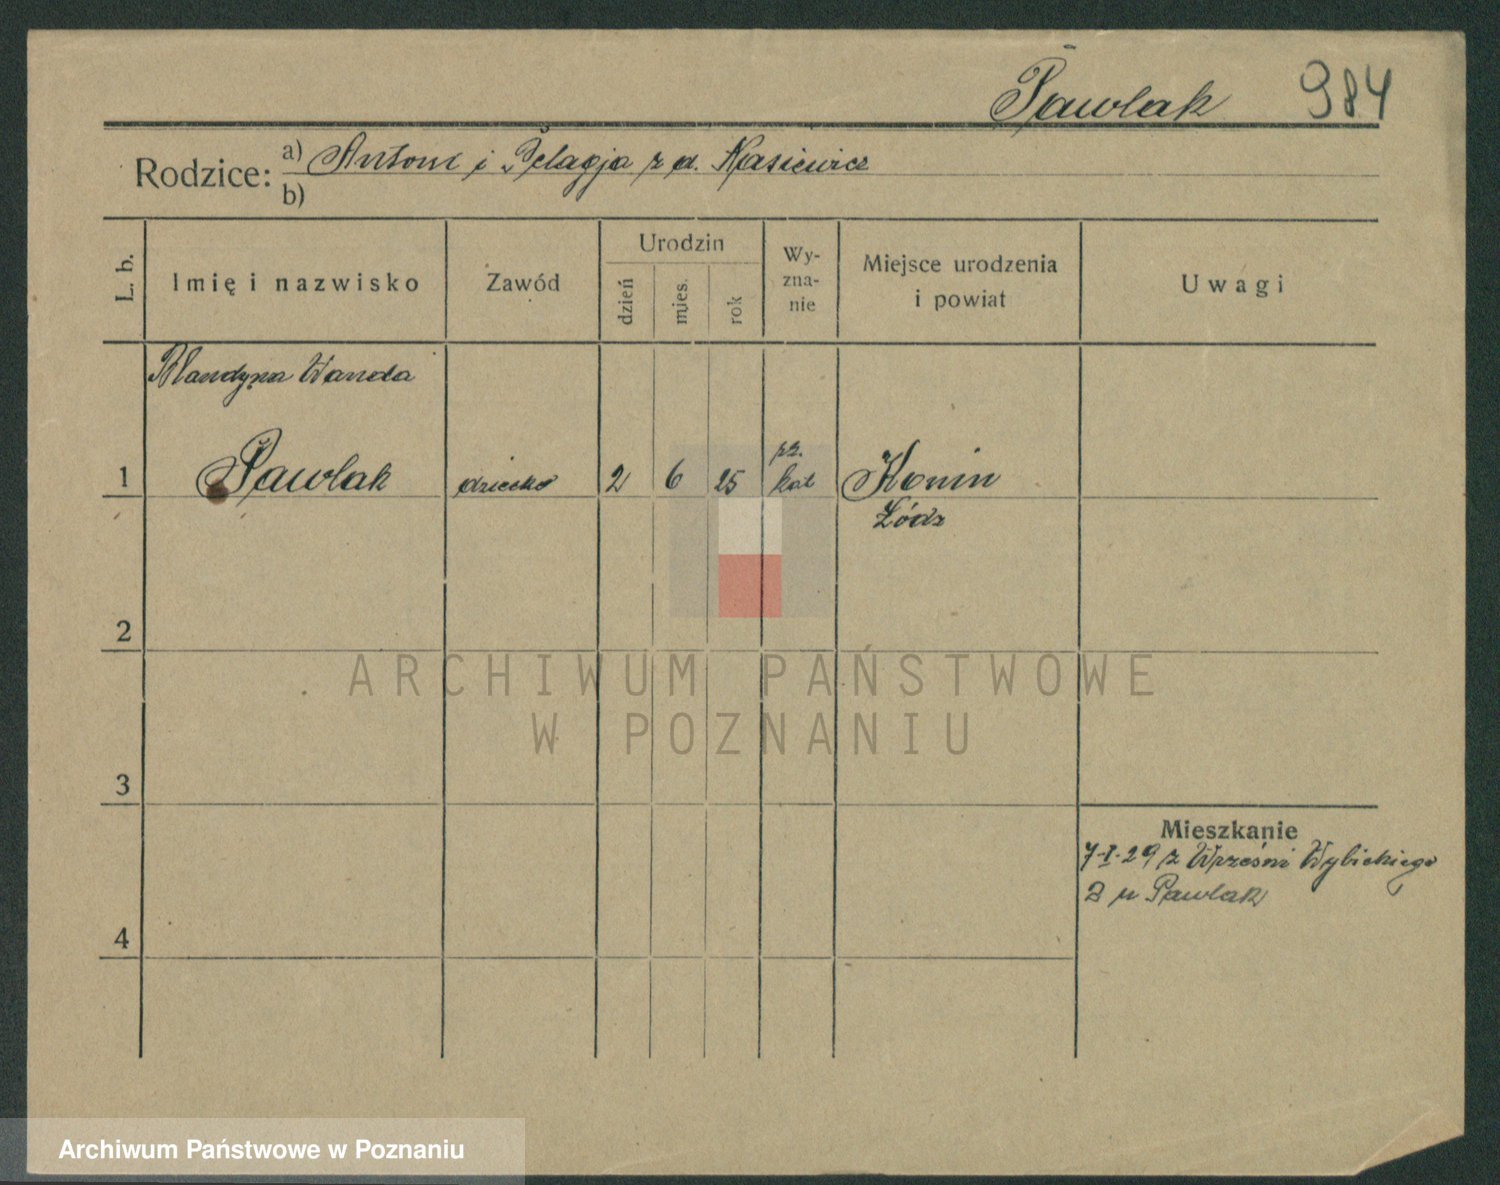 Pawlak 984
Rodzice: a) Antoni i Pelagja z d. Kasiewicz
b)
L. b. Imię i nazwisko Zawód Urodzin dzień mies. rok Wy-zna-nie Miejsce urodzenia i powiat Uwagi
Blandyna Wanda
1 Pawlak dziecko 2 6 25 rz. kat Konin
Łódz
2
ARCHIWUM PAŃSTWOWE
W POZNANIU
3
Mieszkanie
7-I-29 z Wrześni Wybickiego
2 u Pawlak
4
Archiwum Państwowe w Poznaniu